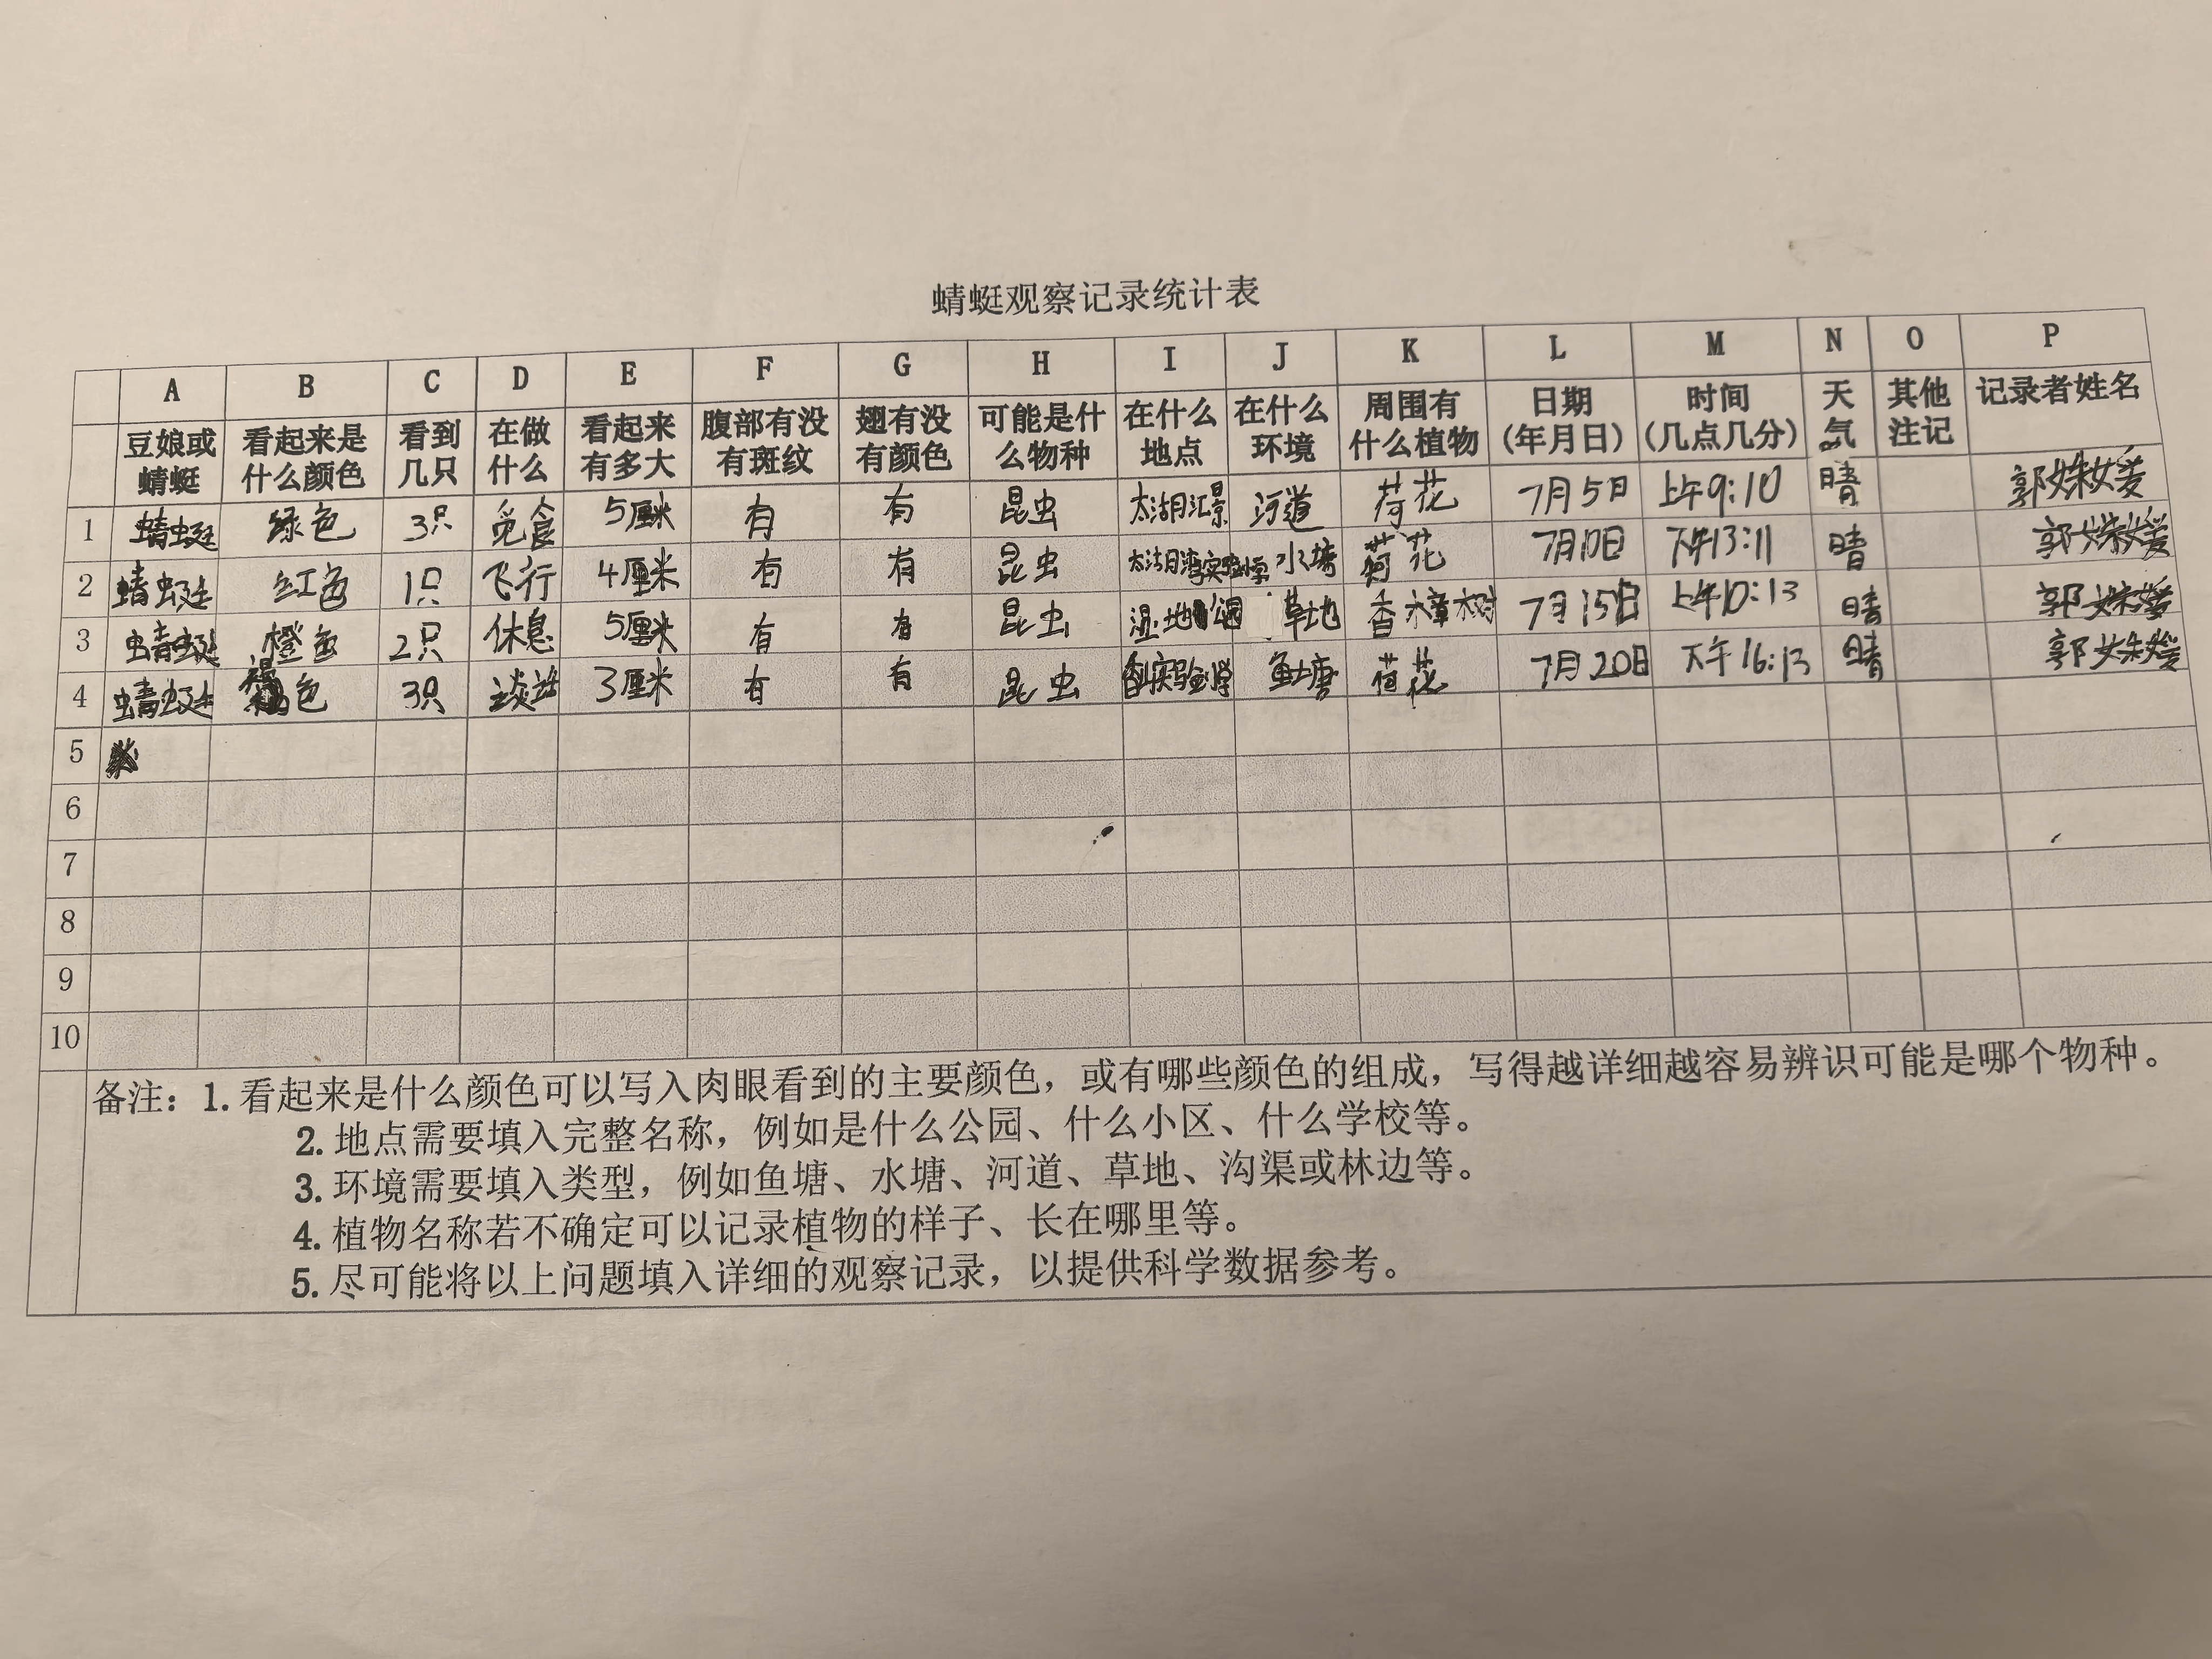 蜻蜓观察记录统计表
A B C D E F G H I J K L M N O P
豆娘或蜻蜓 看起来是什么颜色 看到几只 在做什么 看起来有多大 腹部有没有斑纹 翅有没有颜色 可能是什么物种 在什么地点 在什么环境 周围有什么植物 日期(年月日) 时间(几点几分) 天气 其他注记 记录者姓名
1 蜻蜓 绿色 3只 觅食 5厘米 有 有 昆虫 太湖月汇景 河道 荷花 7月5日 上午9:10 晴 郭姝媛
2 蜻蜓 红色 1只 飞行 4厘米 有 有 昆虫 太湖湾实验小学 水塘 荷花 7月10日 下午13:11 晴 郭姝媛
3 蜻蜓 橙色 2只 休息 5厘米 有 有 昆虫 湿地公园 草地 香樟树 7月15日 上午10:13 晴 郭姝媛
4 蜻蜓 褐色 3只 3厘米 有 有 昆虫 实验小学 鱼塘 荷花 7月20日 下午16:13 晴 郭姝媛
5
6
7
8
9
10
备注：1. 看起来是什么颜色可以写入肉眼看到的主要颜色，或有哪些颜色的组成，写得越详细越容易辨识可能是哪个物种。
2. 地点需要填入完整名称，例如是什么公园、什么小区、什么学校等。
3. 环境需要填入类型，例如鱼塘、水塘、河道、草地、沟渠或林边等。
4. 植物名称若不确定可以记录植物的样子、长在哪里等。
5. 尽可能将以上问题填入详细的观察记录，以提供科学数据参考。